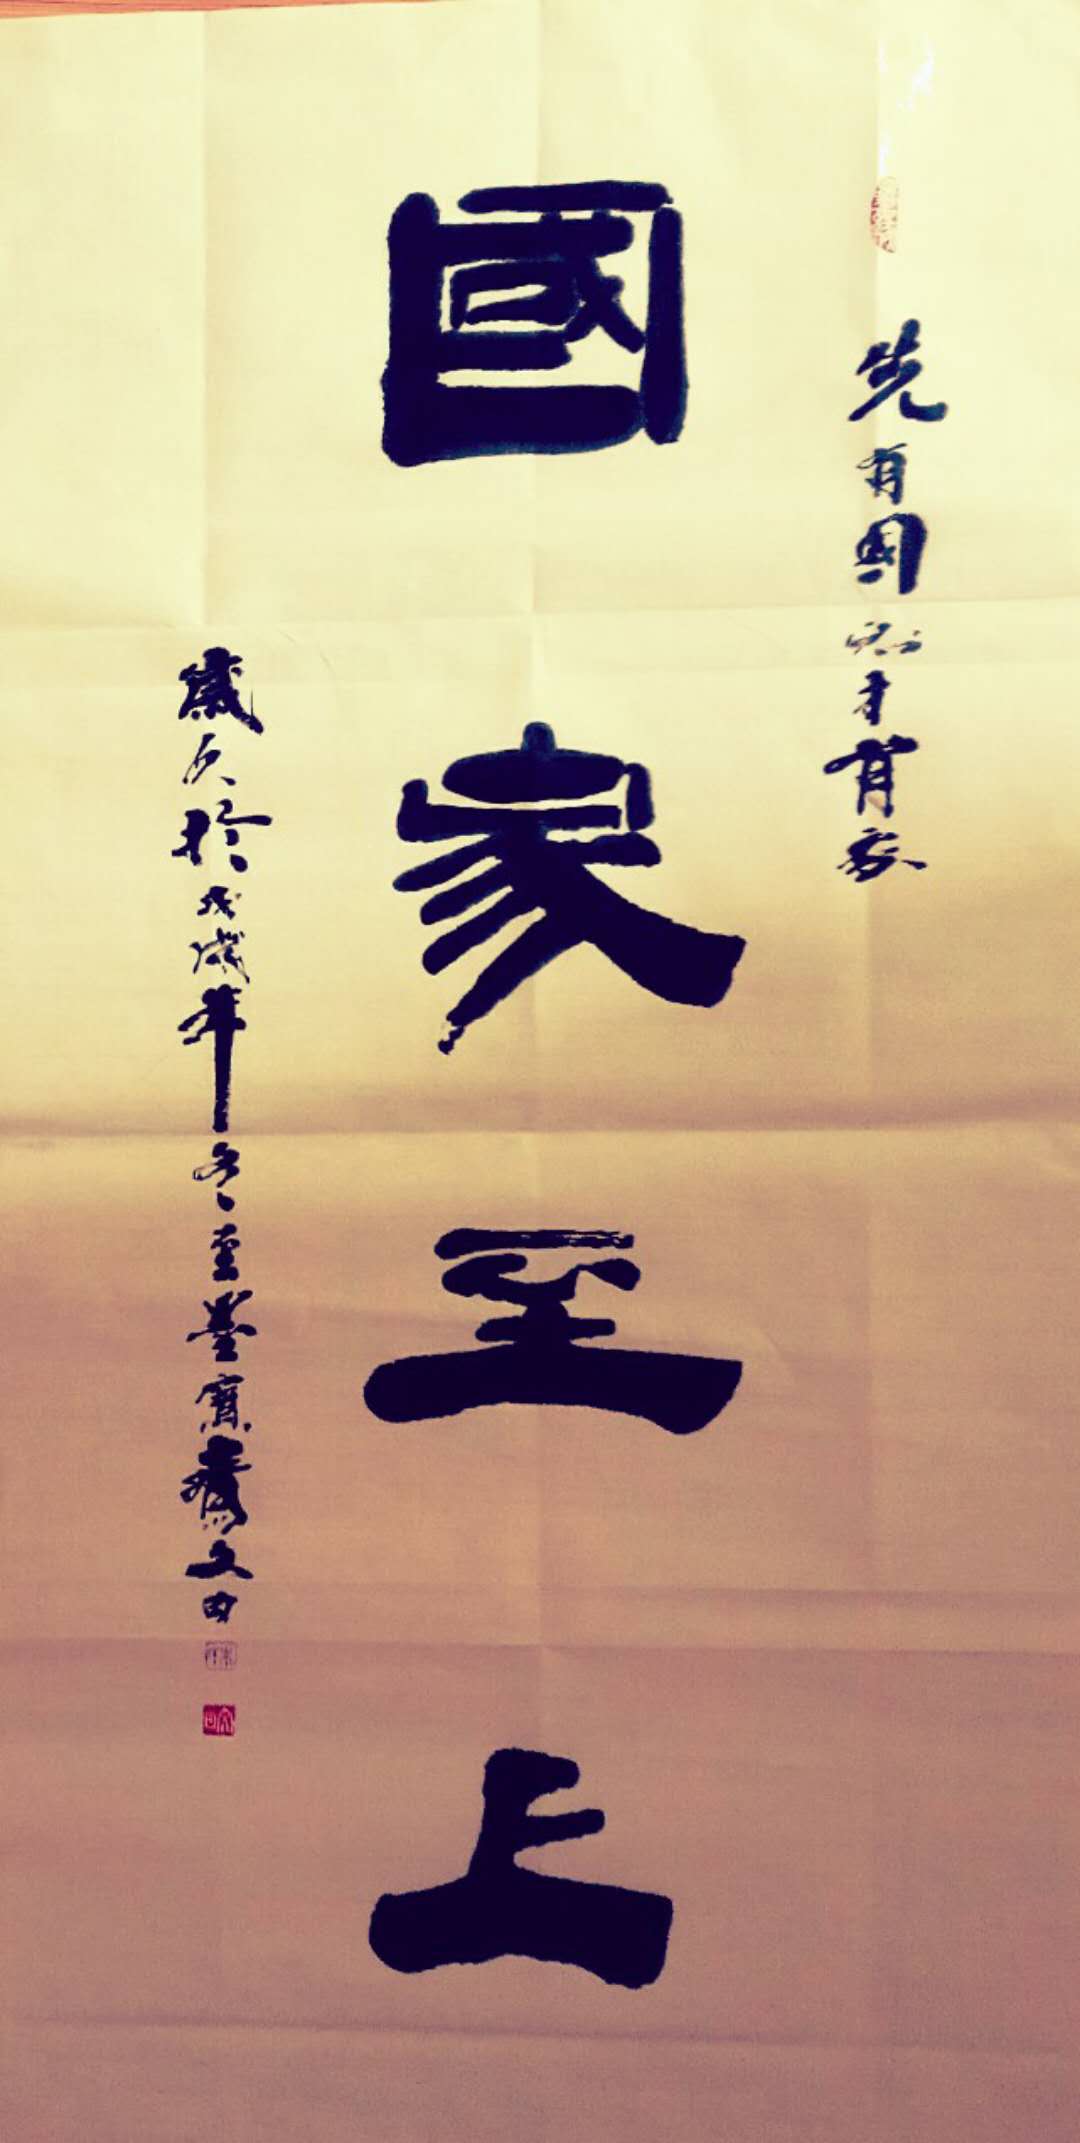 先有國 才有家
國家至上
歲次於戊戌年冬至墨寶齋文田